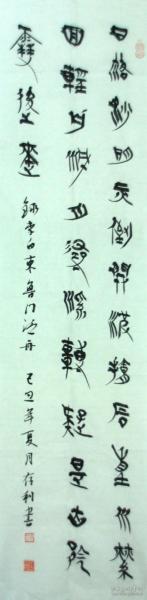 日落沙明天倒開波搖石動水縈
回輕舟泛月尋溪轉疑是山陰
雪後來 錄李白東魯門泛舟 己丑年夏月存利書